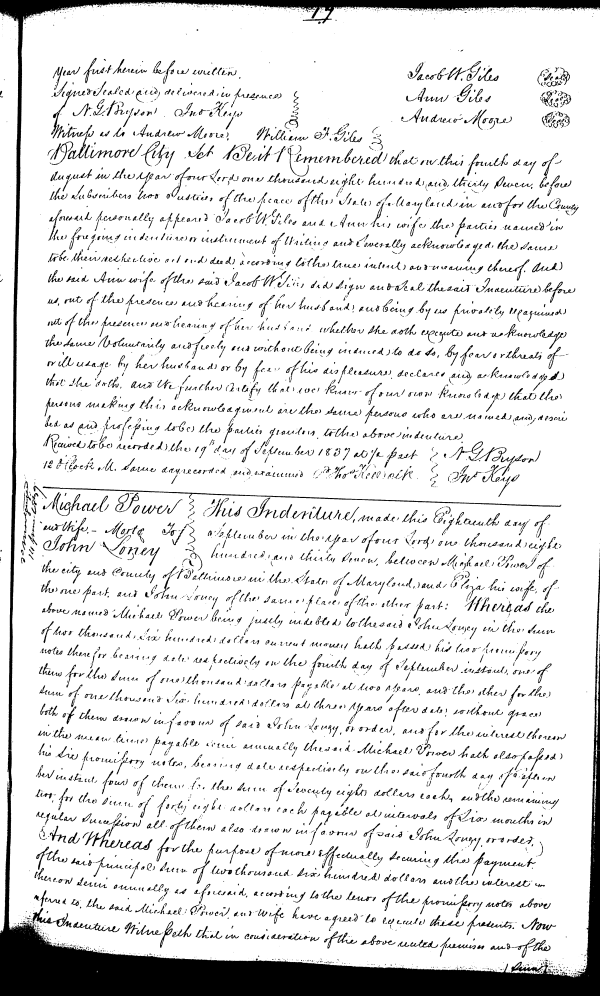 17
year first herein before written.
Signed Sealed and delivered in presence
of N. G. Bryson Jno Keys
Witness as to Andrew Moore, William F. Giles
Jacob W. Giles (Seal)
Ann Giles (Seal)
Andrew Moore (Seal)
Baltimore City Sct Be it Remembered that on this fourth day of
august in the year of our Lord one thousand eight hundred and thirty Seven, before
the Subscribers two Justices of the peace of the State of Maryland in and for the County
aforesaid personally appeared Jacob W Giles and Ann his wife the parties named in
the foregoing indenture or instrument of Writing and Severally acknowledged the same
to be their respective act and deed according to the true intent and meaning thereof. And
the said Ann wife of the said Jacob W Giles did sign and seal the said Indenture before
us, out of the presence and hearing of her husband, and being by us privately examined
out of the presence and hearing of her husband whether she doth execute and acknowledge
the same Voluntarily and freely and without being induced to do so, by fear or threats of
or ill usage by her husband or by fear of his displeasure, declares and acknowledged
that she doth. and We further Certify that we know of our own Knowledge that the
persons making this acknowledgment are the same persons who are named and descri
bed as and professing to be the parties grantors to the above indenture
Received to be recorded the 19th day of September 1837 at ½ past
12 O'Clock M. Same day recorded and examined
N G Bryson
Jno Keys
Michael Power
and Wife - Mortg To
John Loney
This Indenture, made this Eighteenth day of
September in the year of our Lord one thousand eight
hundred and thirty Seven, between Michael Power of
the city and County of Baltimore in the State of Maryland, and Eliza his wife, of
the one part, and John Loney of the same place of the other part: Whereas the
above named Michael Power being justly indebted to the said John Loney in the sum
of two thousand, Six hundred dollars current money hath passed his two promissory
notes therefor bearing date respectively on the fourth day of September instant, one of
them for the sum of one thousand dollars payable at two years, and the other for the
sum of one thousand Six hundred dollars at three years after date, without grace
both of them drawn in favour of said John Loney, or order, and for the interest thereon
in the mean time payable semi annually the said Michael Power hath also passed
his Six promissory notes, bearing date respectively on the said fourth day of Septem
ber instant four of them for the sum of Seventy eight dollars each, and the remaining
two, for the sum of forty eight dollars each payable at intervals of Six months in
regular Succession all of them also drawn in favour of said John Loney or order.
And Whereas for the purpose of more effectually securing the payment
of the said principal sum of two thousand six hundred dollars and the interest
thereon semi annually as aforesaid, according to the tenor of the promissory notes above
referred to, the said Michael Power, and wife have agreed to execute these presents. Now
this Indenture Witnesseth that in consideration of the above recited premises and of the
(sum)